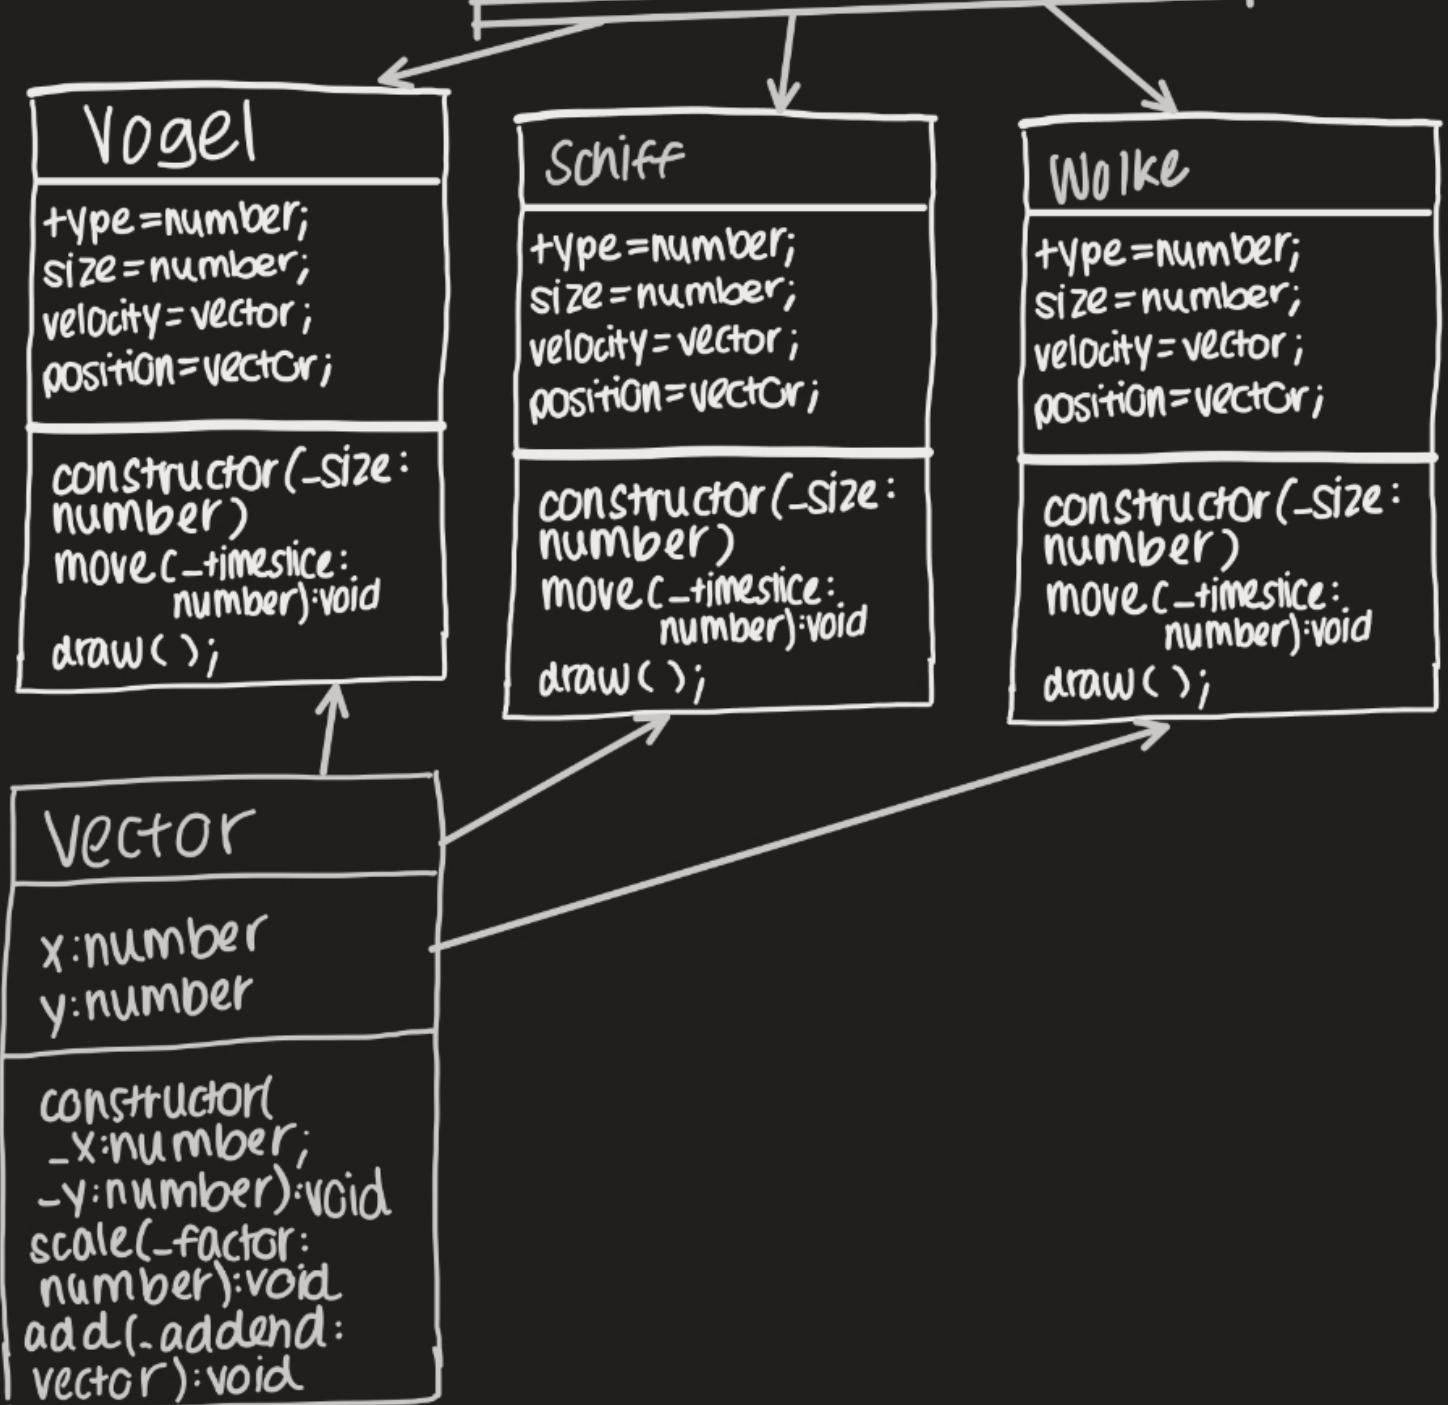 Vogel
type=number;
size=number;
velocity=vector;
position=vector;
constructor(_size:
number)
move(_timeslice:
number):void
draw();
Schiff
type=number;
size=number;
velocity=vector;
position=vector;
constructor(_size:
number)
move(_timeslice:
number):void
draw();
Wolke
type=number;
size=number;
velocity=vector;
position=vector;
constructor(_size:
number)
move(_timeslice:
number):void
draw();
Vector
x:number
y:number
constructor(
_x:number;
_y:number):void
scale(_factor:
number):void
add(_addend:
vector):void